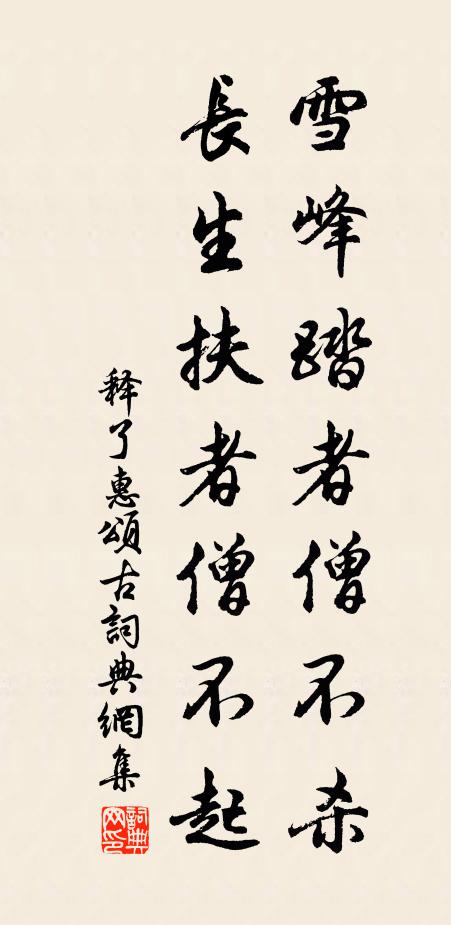 雪峰踏者僧不杀
長生扶者僧不起
释了惠頌古詞典網集
詞典网印